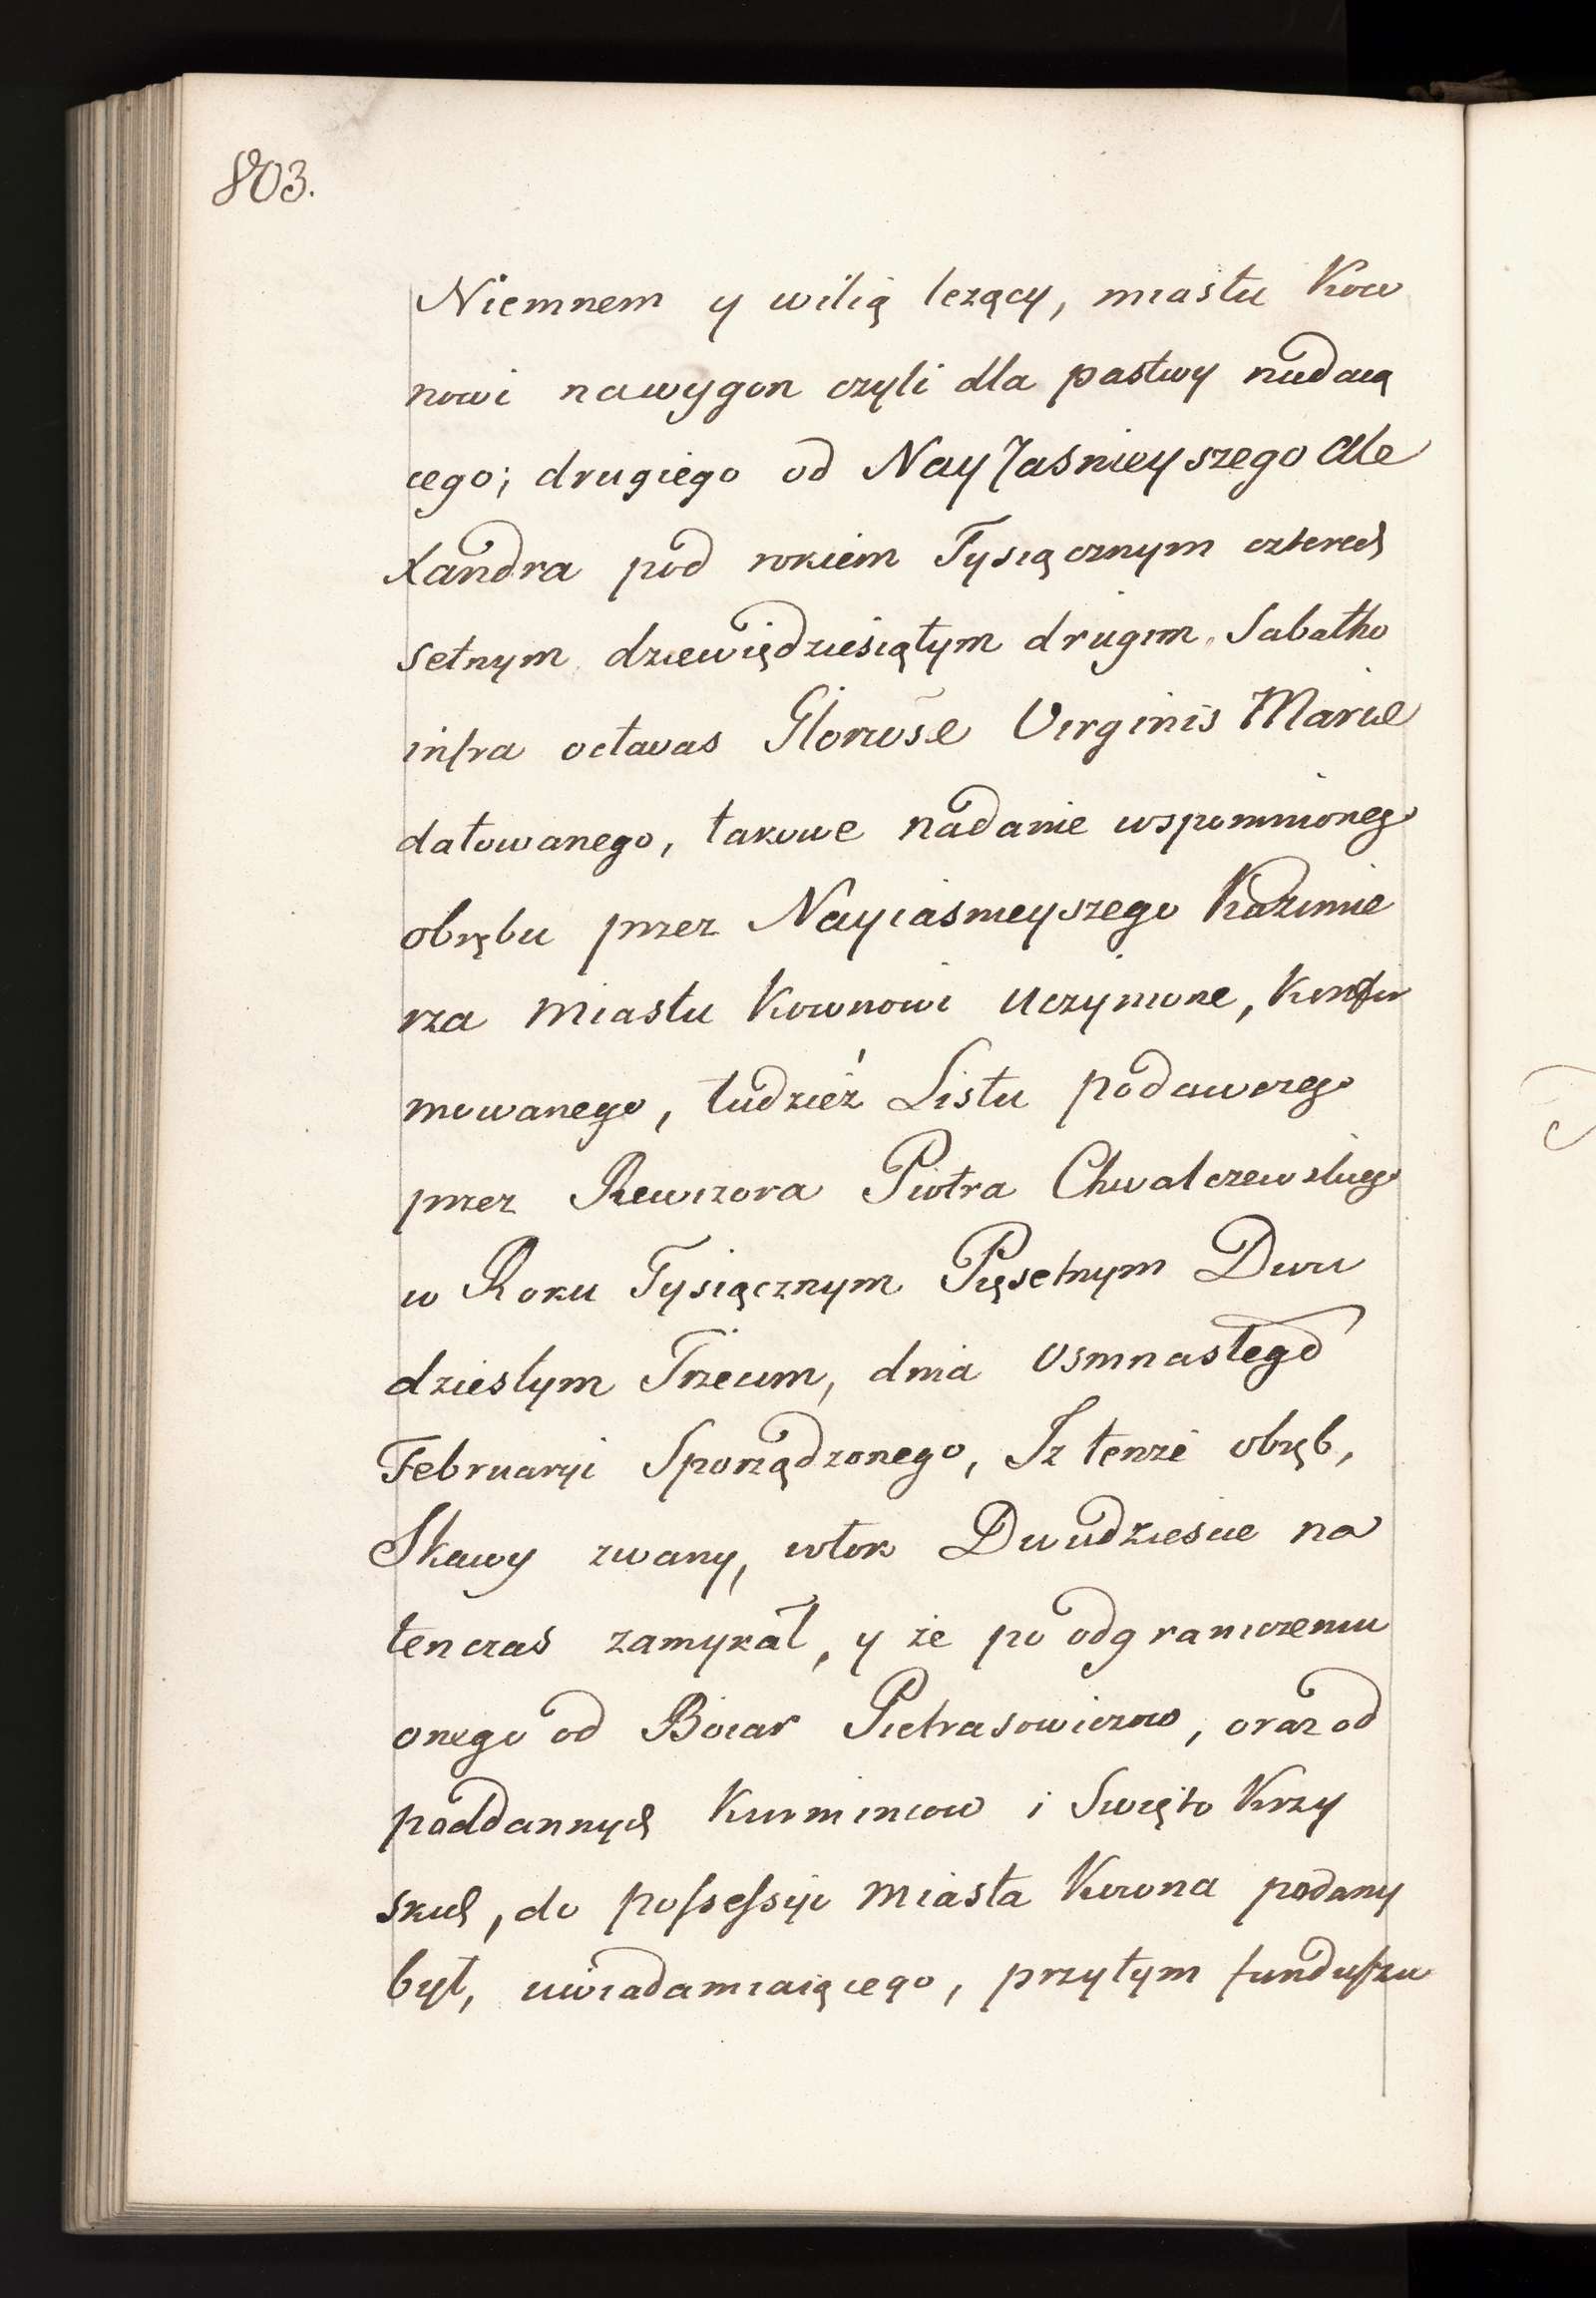 803.
Niemnem y wilią leżący, miastu Kow
nowi nawygon czyli dla pastwy nadaią
cego; drugiego od NayJasnieyszego Ale
xandra pod rokiem Tysiącznym czterech
setnym dziewiędziesiątym drugim Sabatho
infra octavas Gloriose Virginis Marie
datowanego, takowe nadanie wspomnioneg
obrębu przez Nayiasnieyszego Kazimie
rza miastu Kownowi uczynione, konfir
mowanego, tudzież Listu podawczego
przez Rewizora Piotra Chwalczewskieg
w Roku Tysiącznym Pięsetnym Dwu
dziestym Trzecim, dnia Osmnastego
Februaryi Sporządzonego, Iż tenże obręb,
Skawy zwany, włok Dwudzieście na
tenczas zamykał, y że po odgraniczeniu
onego od Boiar Pietrasowiczow, oraz od
poddannych Kurmincow i Swięto Krzy
skich, do possessyi miasta Kowna podany
był, uwiadamiaiącego, przytym funduszu